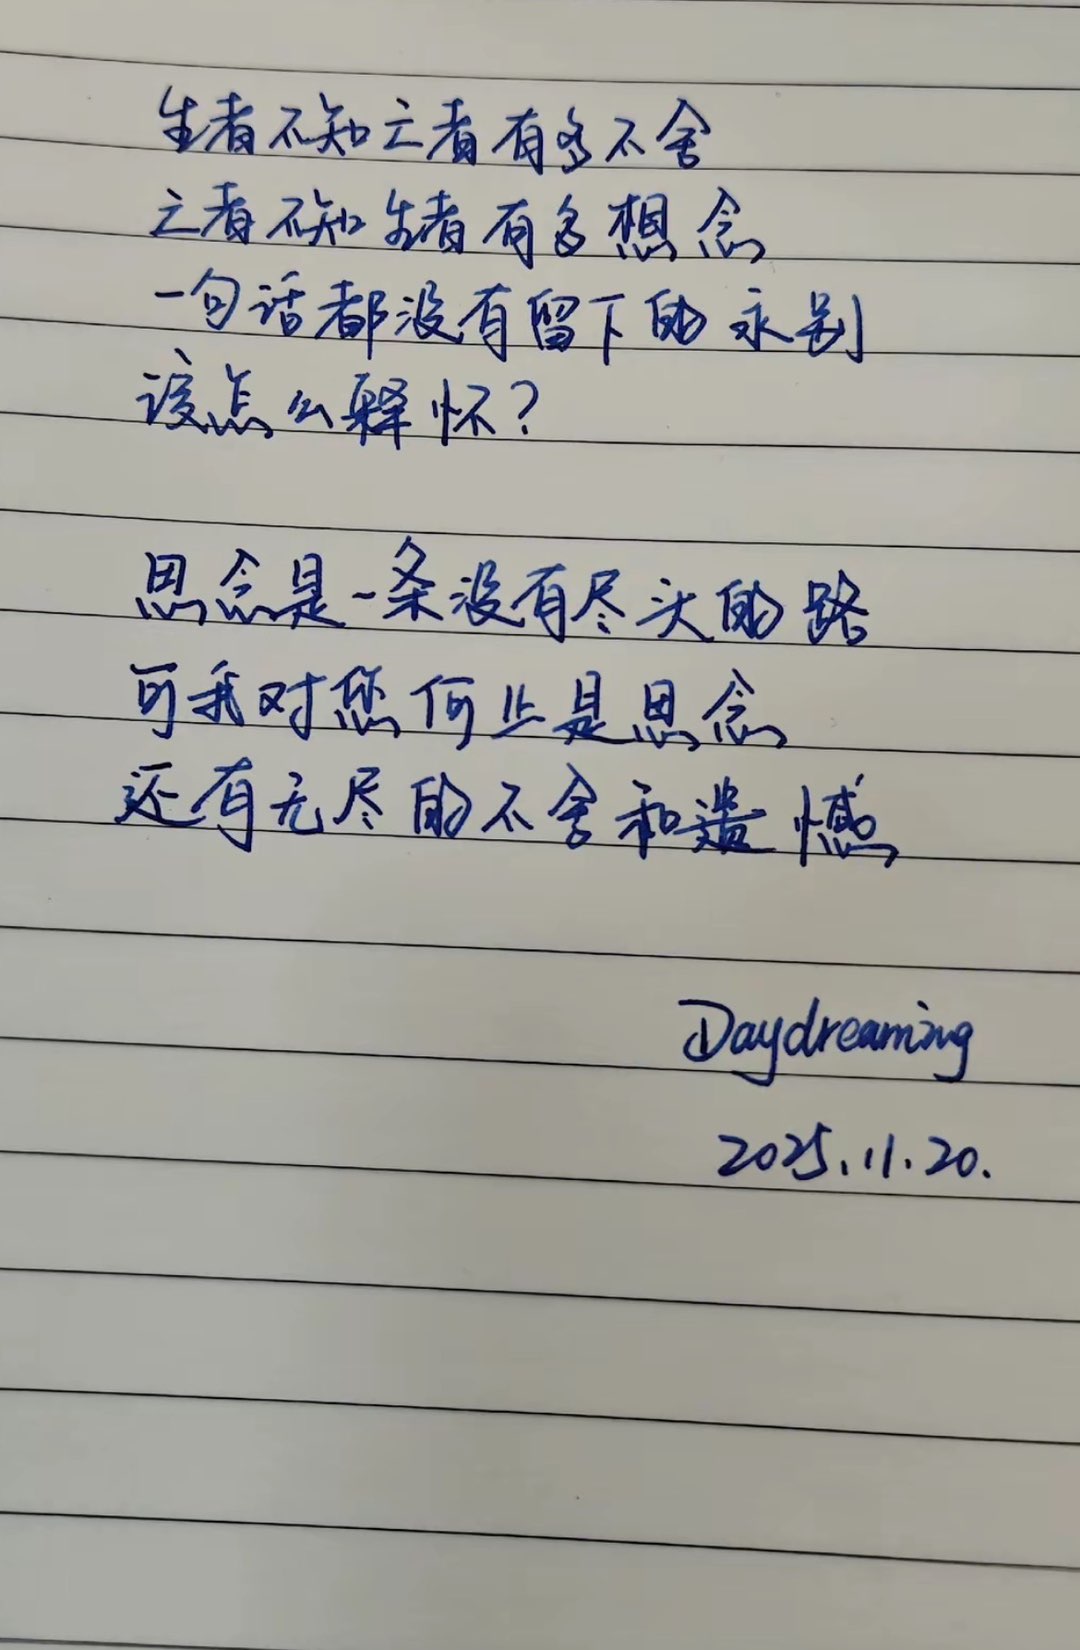 生者不知亡者有多不舍
亡者不知生者有多想念
一句话都没有留下的永别
该怎么释怀？
思念是一条没有尽头的路
可我对您何止是思念
还有无尽的不舍和遗憾
Daydreaming
2025.11.20.